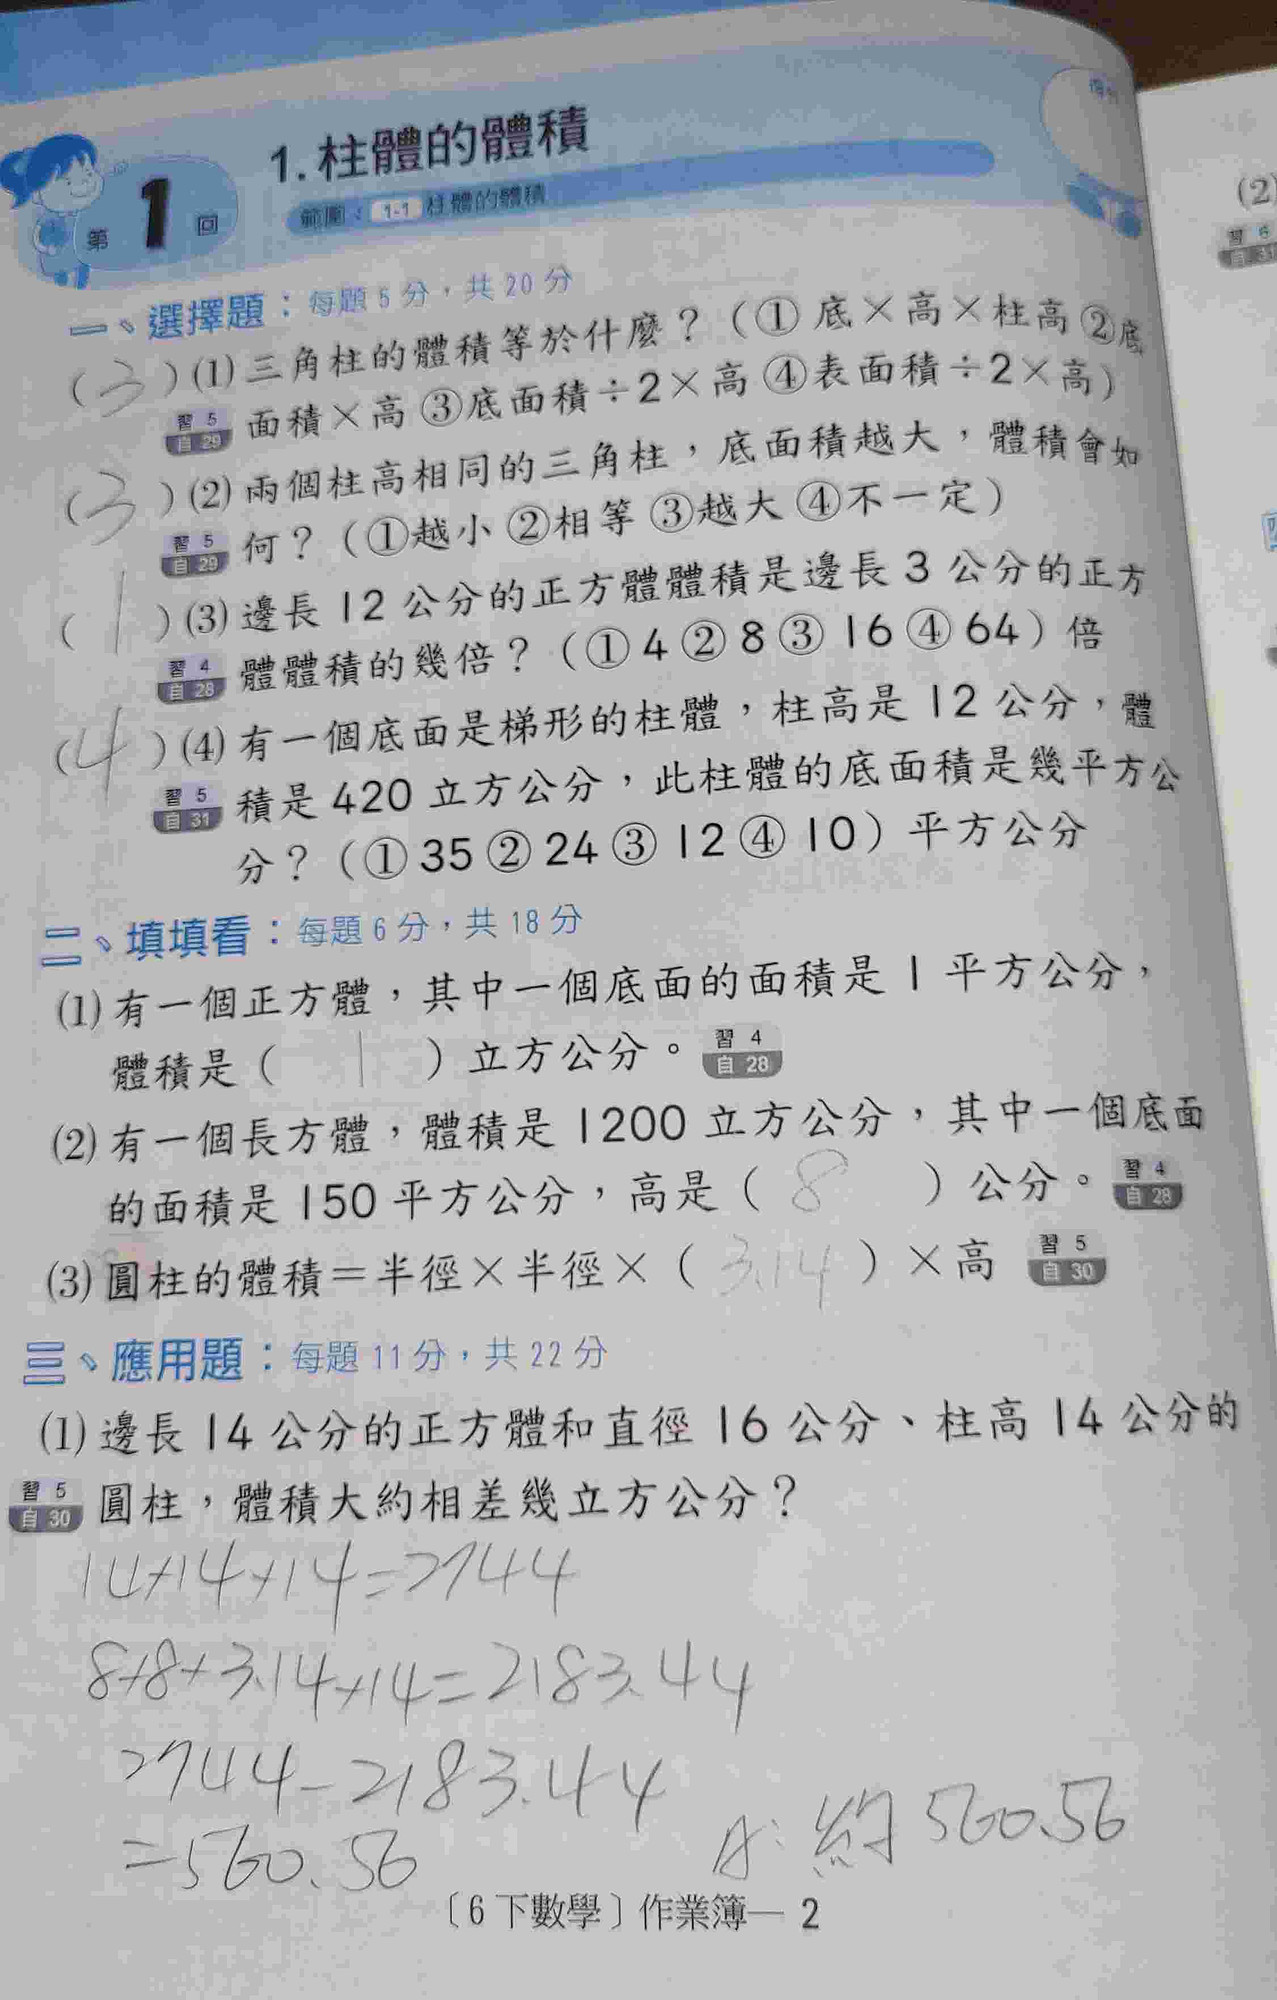 第1回
1.柱體的體積
範圍：1-1 柱體的體積
一、選擇題：每題5分，共20分
(3)(1)三角柱的體積等於什麼？（①底×高×柱高②底
習5 自29 面積×高③底面積÷2×高④表面積÷2×高）
(3)(2)兩個柱高相同的三角柱，底面積越大，體積會如
習5 自29 何？（①越小②相等③越大④不一定）
(1)(3)邊長12公分的正方體體積是邊長3公分的正方
習4 自28 體體積的幾倍？（①4②8③16④64）倍
(4)(4)有一個底面是梯形的柱體，柱高是12公分，體
習5 自31 積是420立方公分，此柱體的底面積是幾平方公
分？（①35②24③12④10）平方公分
二、填填看：每題6分，共18分
(1)有一個正方體，其中一個底面的面積是1平方公分，
體積是（1）立方公分。習4 自28
(2)有一個長方體，體積是1200立方公分，其中一個底面
的面積是150平方公分，高是（8）公分。習4 自28
(3)圓柱的體積＝半徑×半徑×（3.14）×高 習5 自30
三、應用題：每題11分，共22分
(1)邊長14公分的正方體和直徑16公分、柱高14公分的
習5 自30 圓柱，體積大約相差幾立方公分？
14×14×14=2744
8×8×3.14×14=2183.44
2744-2183.44
=560.56
A:約560.56
〔6下數學〕作業簿—2
(2)